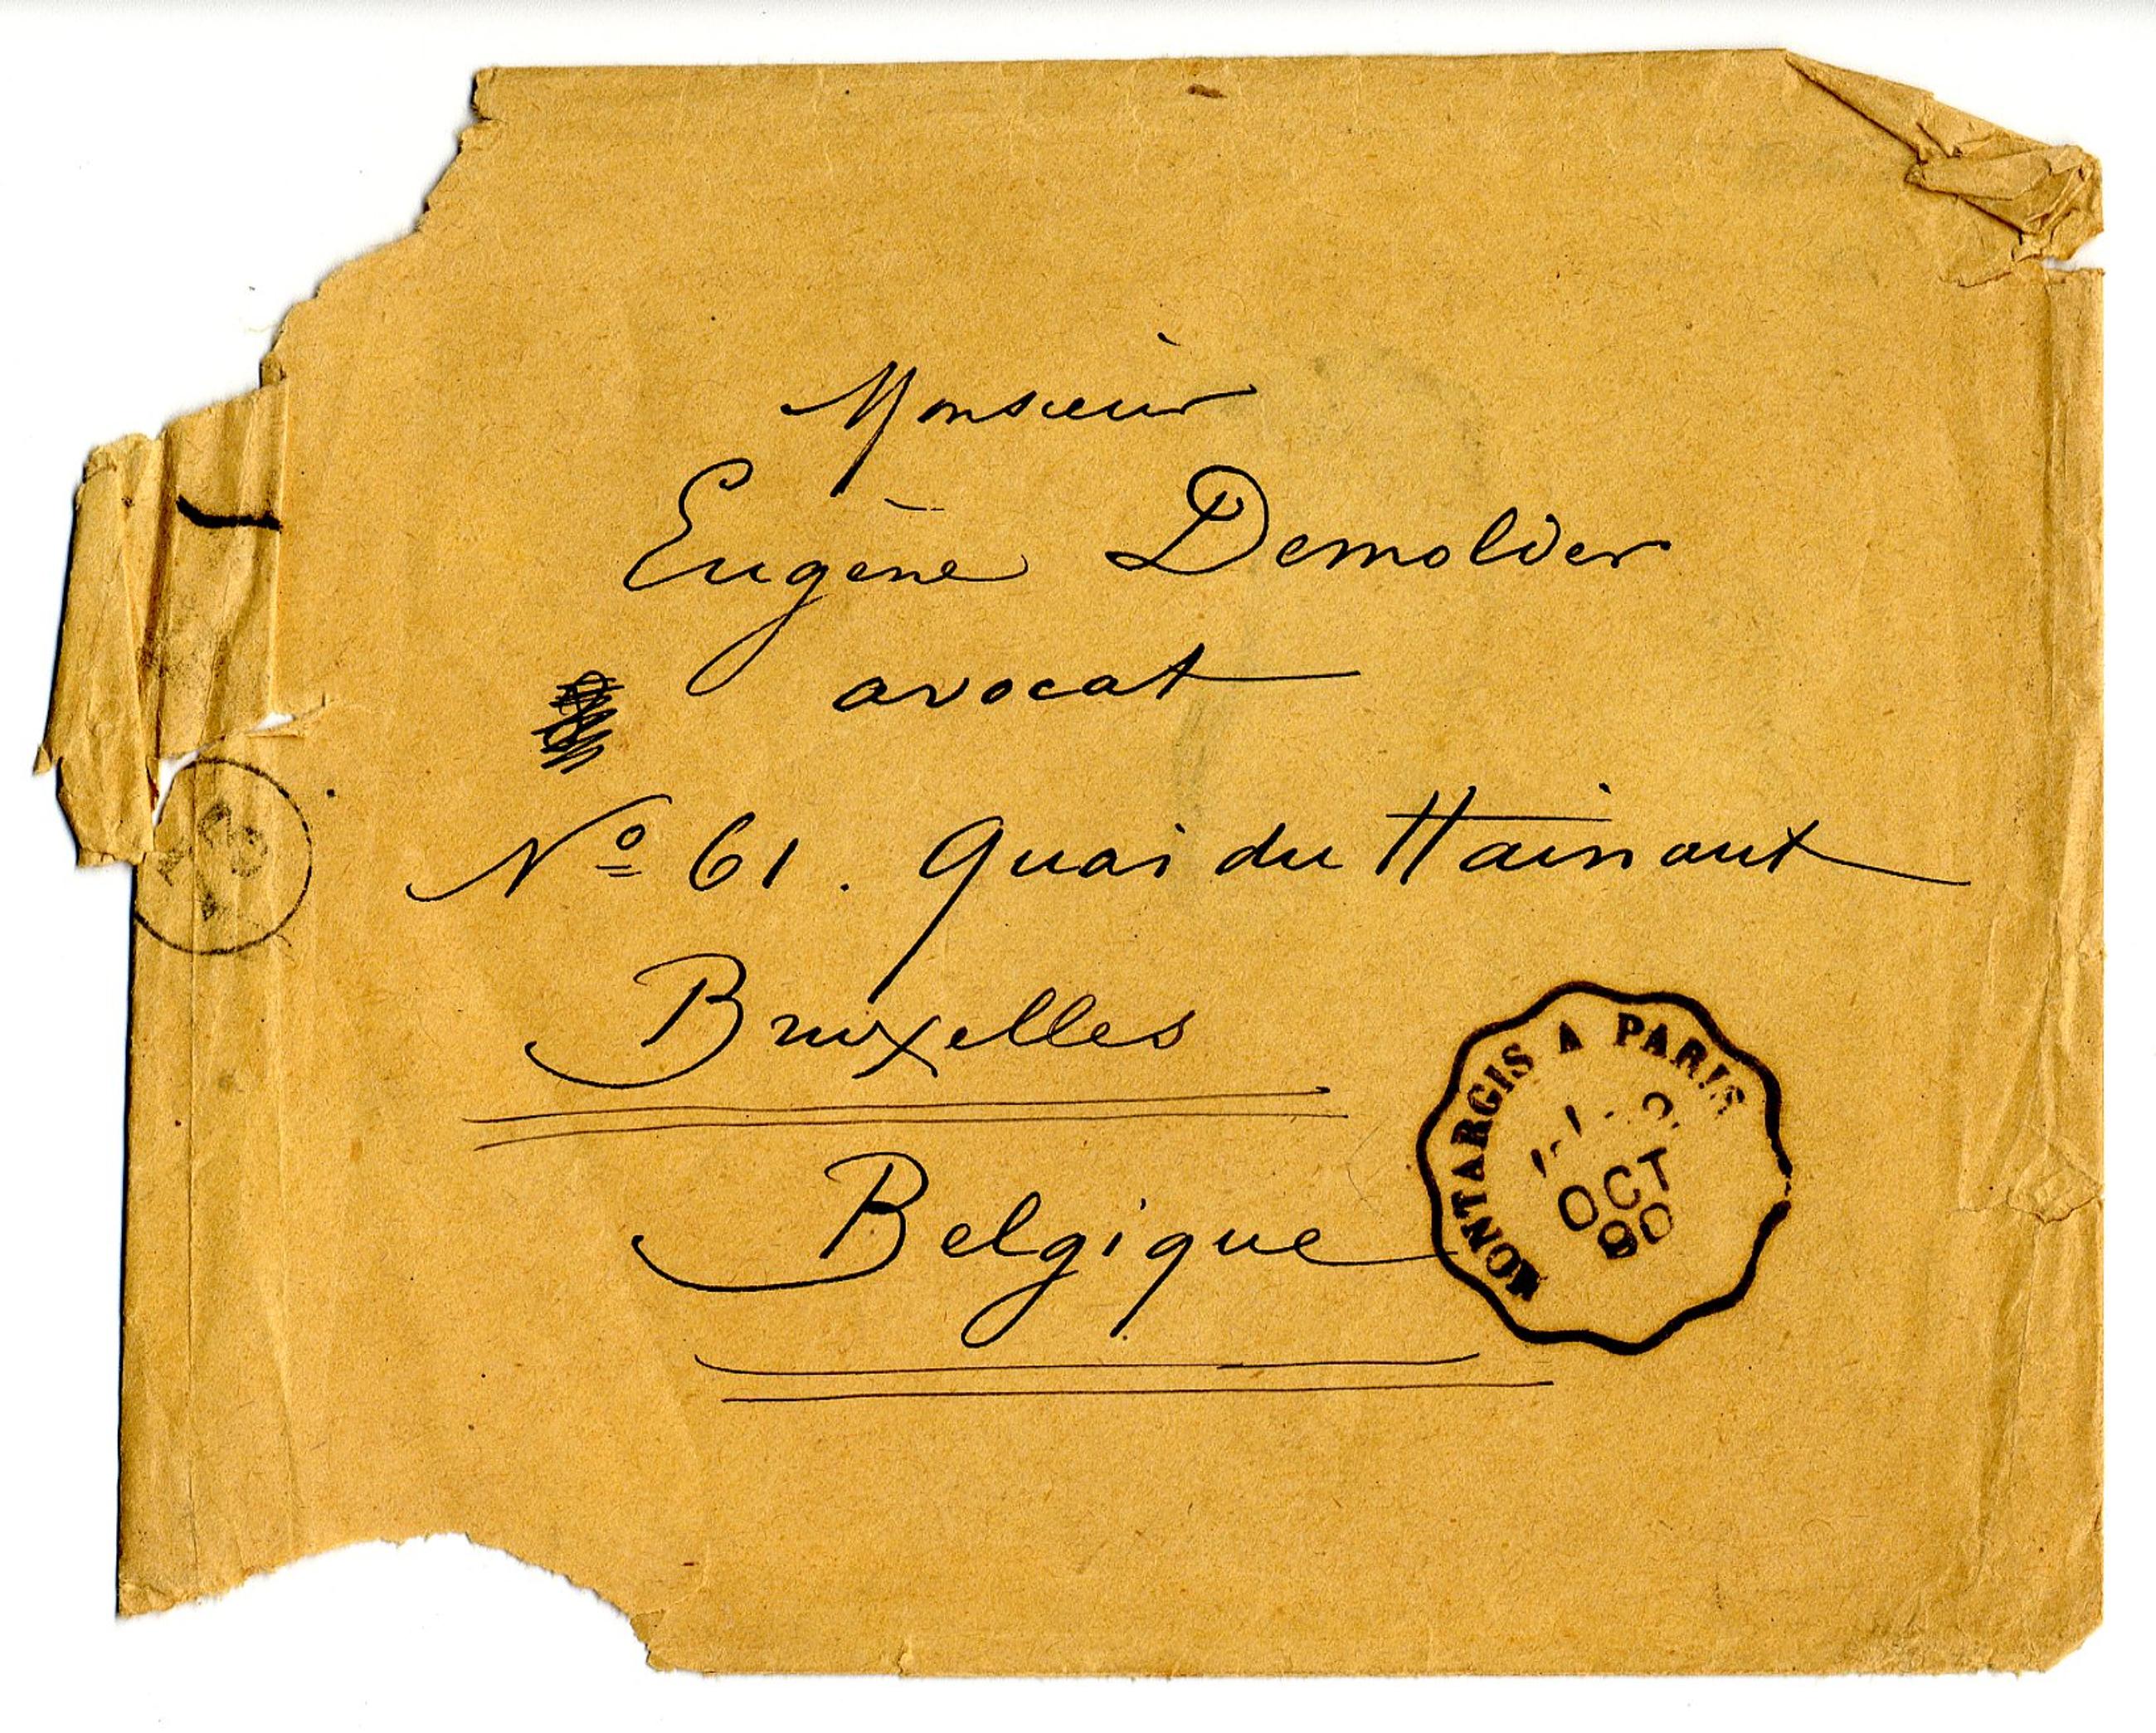 Monsieur
Eugène Demolder
avocat
Nº 61. Quai du Hainaut
Bruxelles
Belgique
MONTARGIS A PARIS
OCT
90